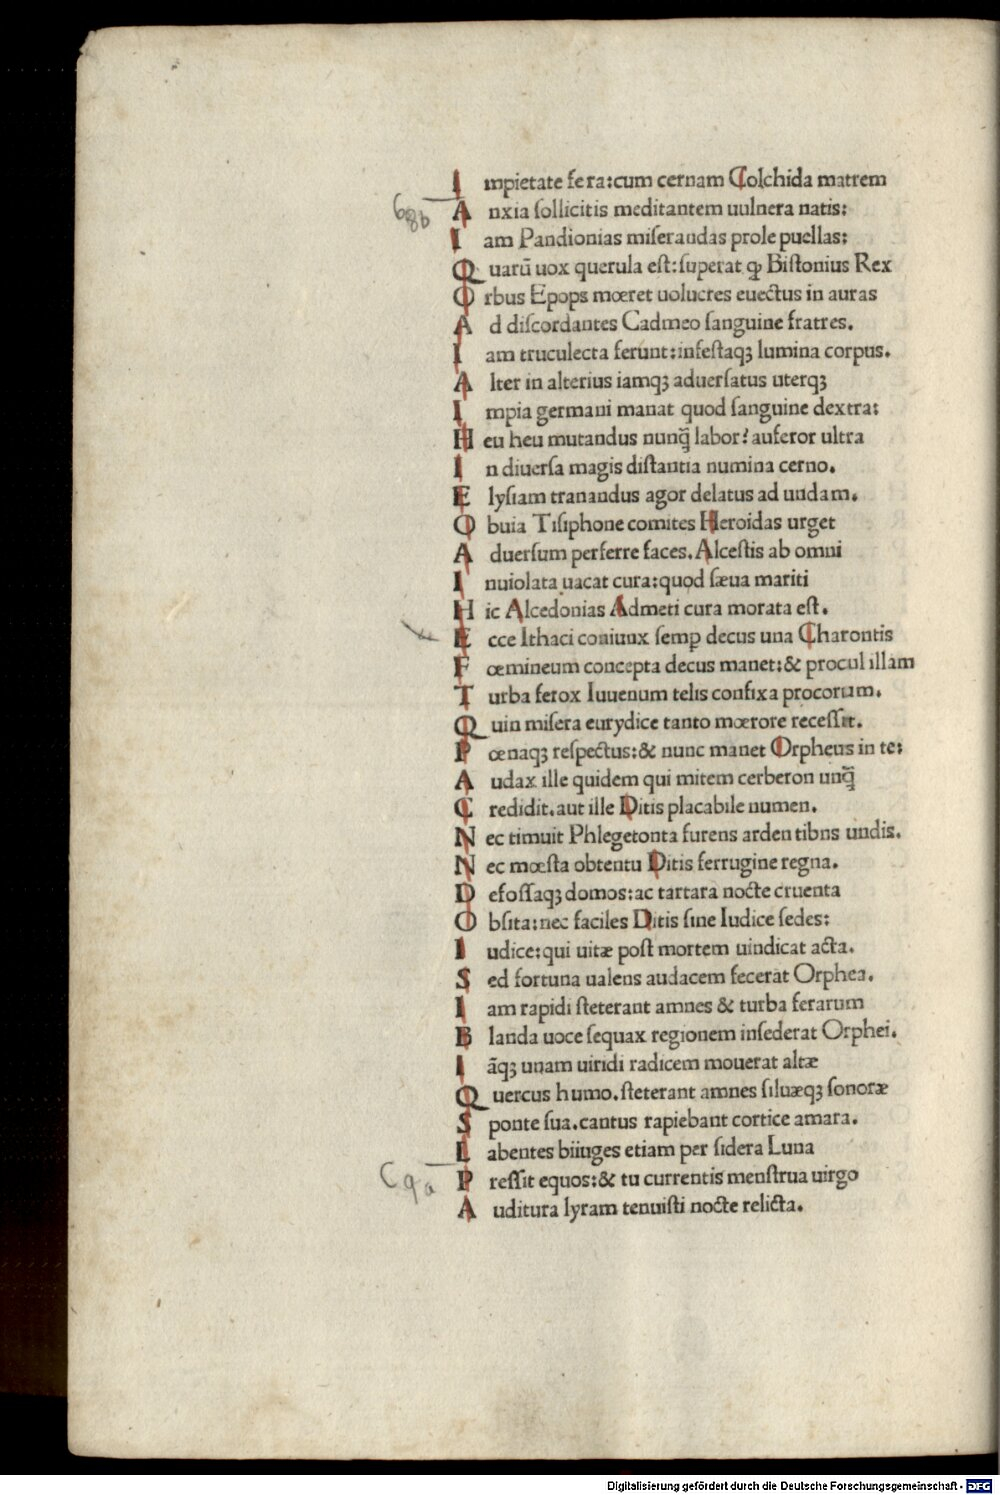 I mpietate fera:cum cernam Colchida matrem
A nxia sollicitis meditantem uulnera natis:
I am Pandionias miserandas prole puellas:
Q uarū uox querula est:superat ꝙ Bistonius Rex
O rbus Epops mœret uolucres euectus in auras
A d discordantes Cadmeo sanguine fratres.
I am truculecta ferunt:infestaqꝫ lumina corpus.
A lter in alterius iamqꝫ aduersatus uterqꝫ
I mpia germani manat quod sanguine dextra:
H eu heu mutandus nunq̄ labor? auferor ultra
I n diuersa magis distantia numina cerno.
E lysiam tranandus agor delatus ad undam.
O buia Tisiphone comites Heroidas urget
A duersum perferre faces. Alcestis ab omni
I nuiolata uacat cura:quod sæua mariti
H ic Alcedonias Admeti cura morata est.
E cce Ithaci coniunx semꝑ decus una Charontis
F œmineum concepta decus manet:& procul illam
T urba ferox Iuuenum telis confixa procorum.
Q uin misera eurydice tanto mœrore recessit.
P œnaqꝫ respectus:& nunc manet Orpheus in te:
A udax ille quidem qui mitem cerberon unq̄
C redidit.aut ille Ditis placabile numen.
N ec timuit Phlegetonta furens ardentibns undis.
N ec mœsta obtentu Ditis ferrugine regna.
D efossaqꝫ domos:ac tartara nocte cruenta
O bsita:nec faciles Ditis sine Iudice sedes:
I udice:qui uitæ post mortem uindicat acta.
S ed fortuna ualens audacem fecerat Orphea.
I am rapidi steterant amnes & turba ferarum
B landa uoce sequax regionem insederat Orphei.
I āqꝫ unam uiridi radicem mouerat altæ
Q uercus humo.steterant amnes siluæqꝫ sonoræ
S ponte sua.cantus rapiebant cortice amara.
L abentes biiuges etiam per sidera Luna
P ressit equos:& tu currentis menstrua uirgo
A uditura lyram tenuisti nocte relicta.
Digitalisierung gefördert durch die Deutsche Forschungsgemeinschaft - DFG